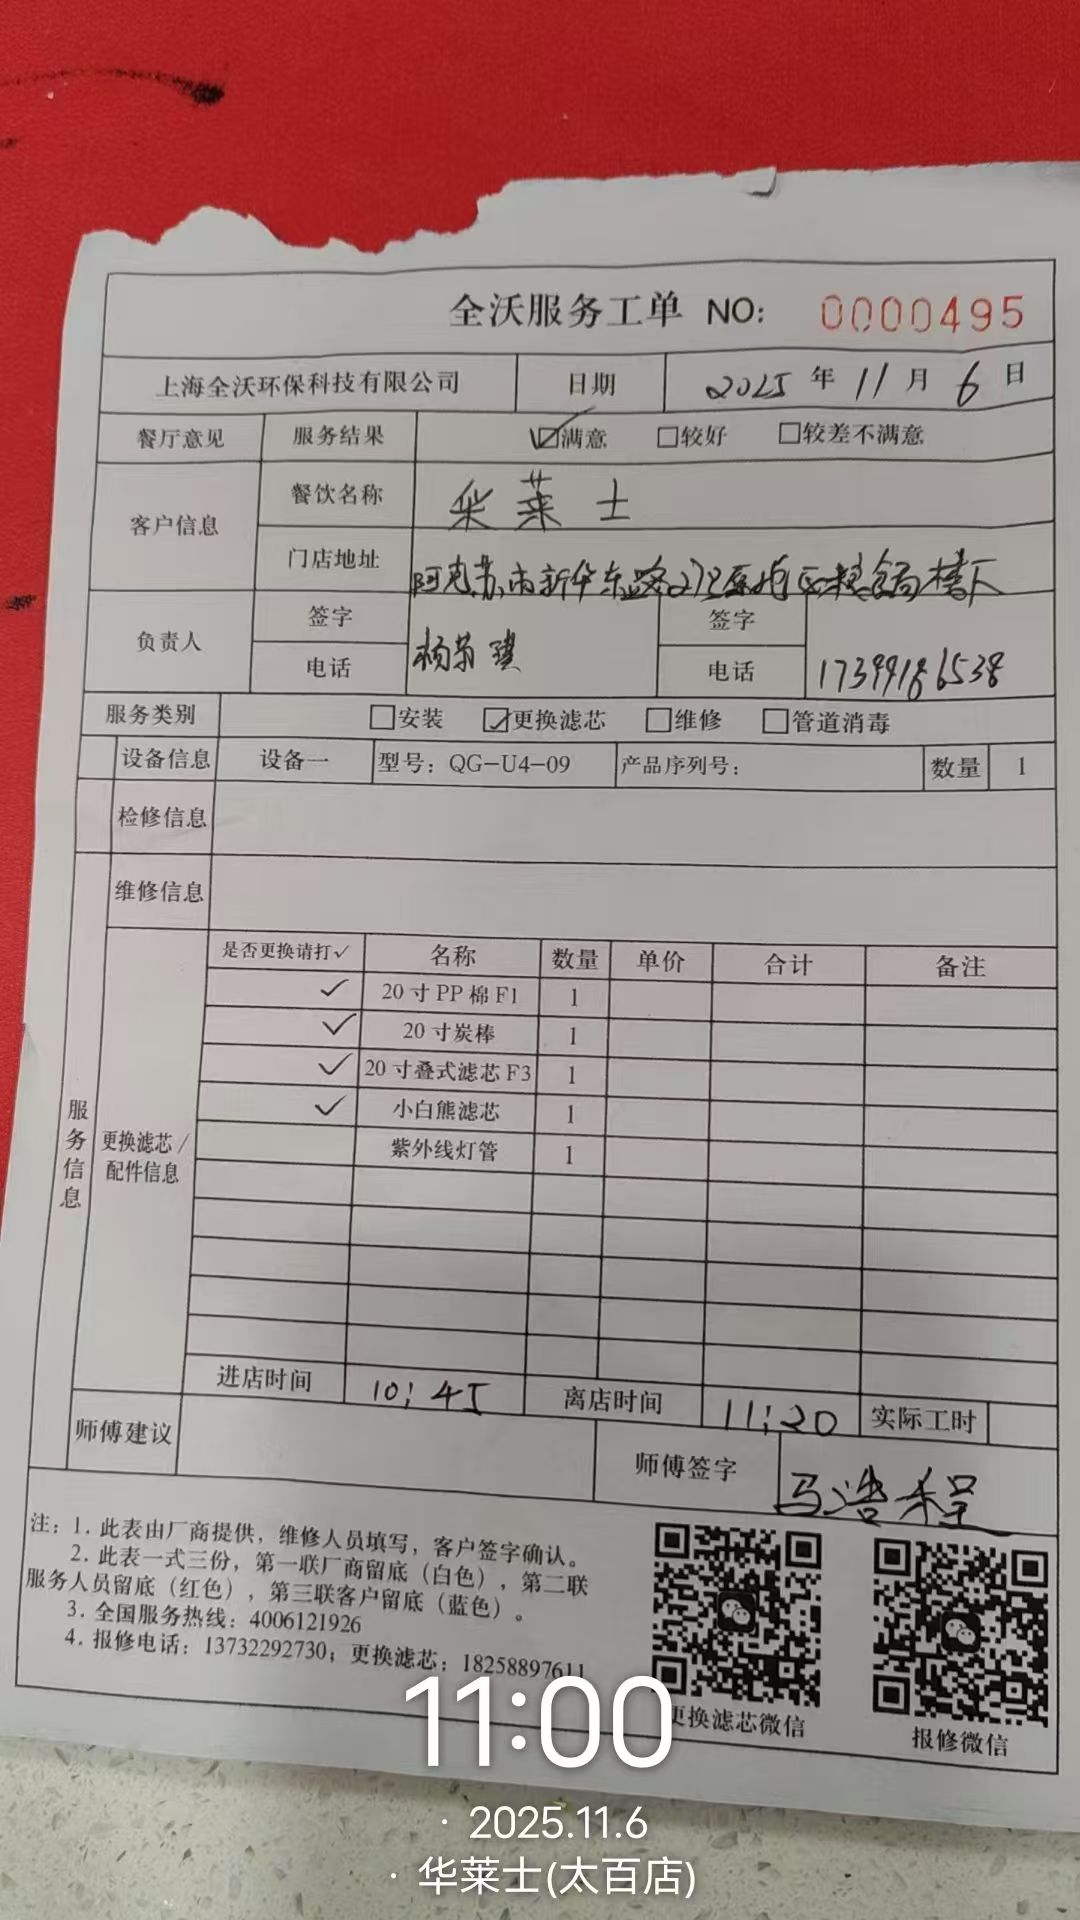 全沃服务工单 NO: 0000495
上海全沃环保科技有限公司 日期 2025 年 11 月 6 日
餐厅意见 服务结果 ☑满意 □较好 □较差不满意
客户信息 餐饮名称 华莱士
门店地址 阿克苏市新华东路 粮食局楼下
负责人 签字 杨 签字
电话 电话 17399186538
服务类别 □安装 ☑更换滤芯 □维修 □管道消毒
设备信息 设备一 型号：QG-U4-09 产品序列号： 数量 1
检修信息
维修信息
服务信息
更换滤芯/
配件信息
是否更换请打✓ 名称 数量 单价 合计 备注
✓ 20寸PP棉F1 1
✓ 20寸炭棒 1
✓ 20寸叠式滤芯F3 1
✓ 小白熊滤芯 1
紫外线灯管 1
进店时间 10:45 离店时间 11:20 实际工时
师傅建议 师傅签字 马浩程
注：1. 此表由厂商提供，维修人员填写，客户签字确认。
2. 此表一式三份，第一联厂商留底（白色），第二联
服务人员留底（红色），第三联客户留底（蓝色）。
3. 全国服务热线：4006121926
4. 报修电话：13732292730；更换滤芯：18258897611
更换滤芯微信 报修微信
11:00
· 2025.11.6
· 华莱士(太百店)